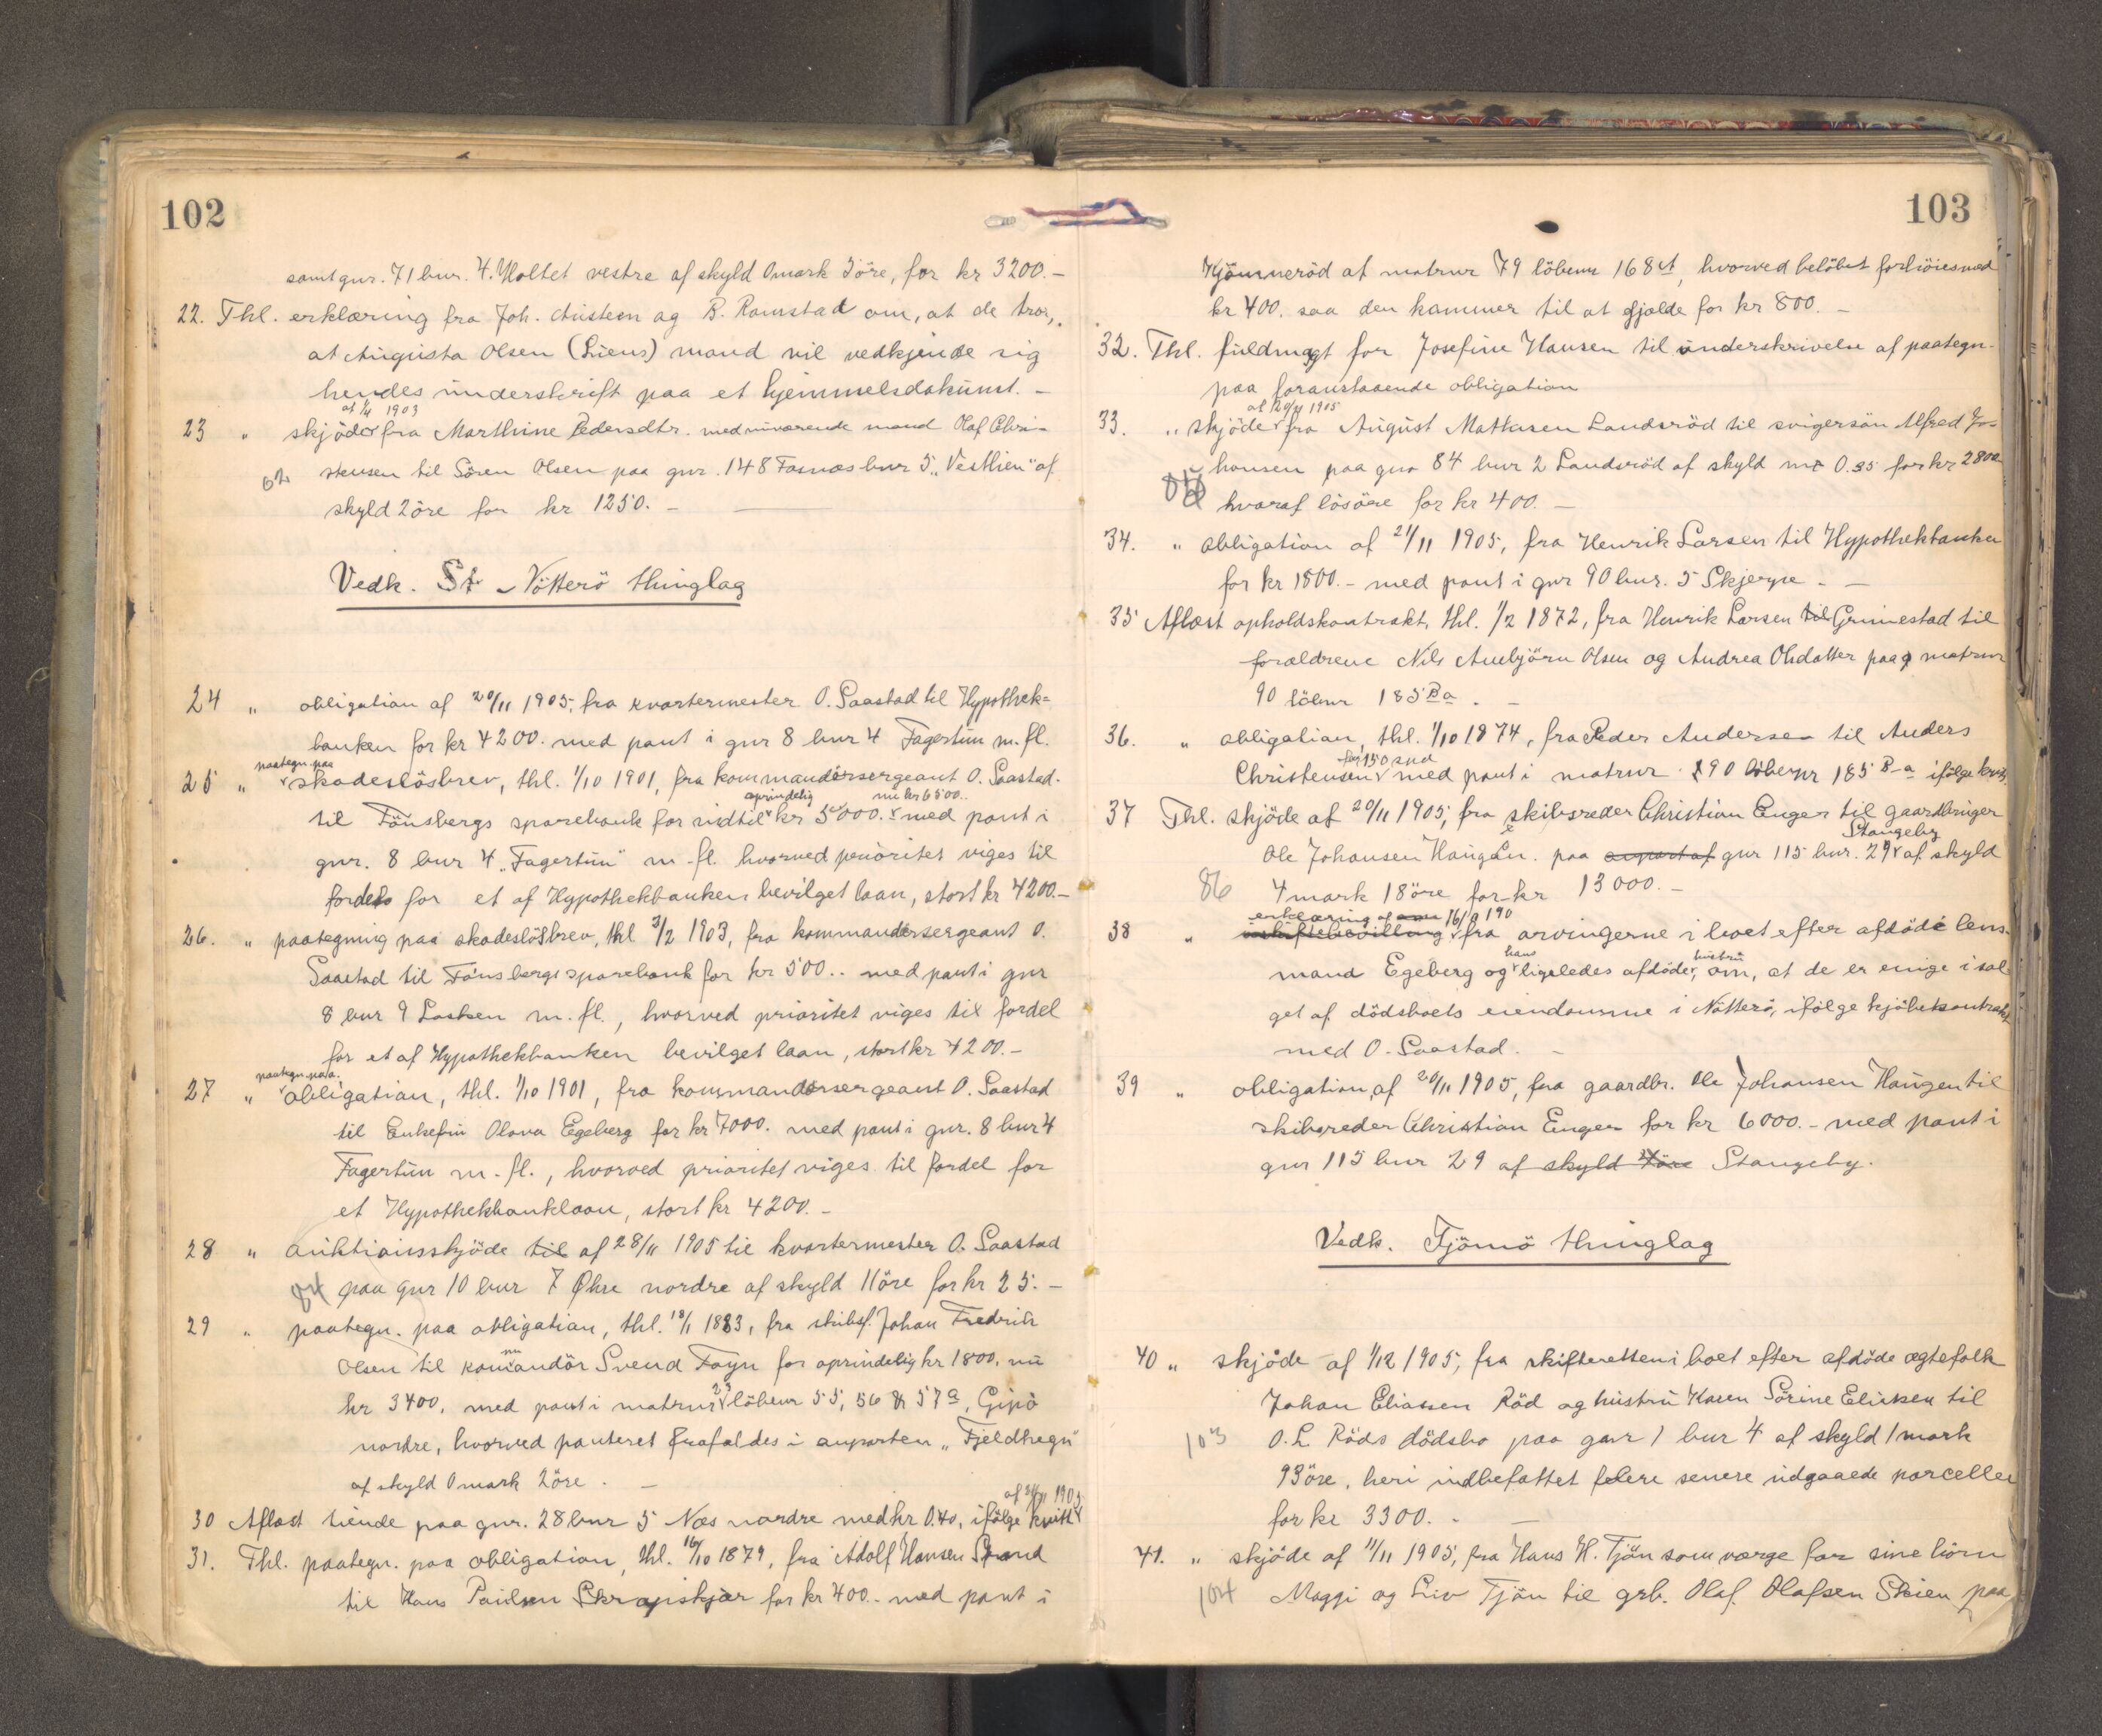 102
samt gnr. 71 bnr. 4. Holtet vestre af skyld 0 mark 3 öre, for kr 3200.-
22. Thl. erklæring fra Joh. Austeen og B. Ramstad om, at de tror,
at Augusta Olsen (Liens) mand vil vedkjende sig
hendes underskrift paa et hjemmelsdokument. -
af 1/4 1903
23 " skjöde fra Marthine Pedersdtr. med nuværende mand Olaf Chri-
62 stensen til Sören Olsen paa gnr. 148 Fasnæs bnr 5 "Vestlien" af
skyld 2 öre for kr 1250. -
Vedk. St Nötterö thinglag
24 " obligation af 20/11 1905, fra kvartermester O. Saastad til Hypothek=
banken for kr 4200. med pant i gnr 8 bnr 4 Fagertun m. fl.
paategn. paa
25 " skadeslösbrev, thl. 1/10 1901, fra kommandörsergeant O. Saastad
oprindelig nu kr 6500..
til Tönsbergs sparebank for indtil kr 5000. med pant i
gnr. 8 bnr 4 "Fagertun" m. fl. hvorved prioritet viges til
fordel for et af Hypothekbanken bevilget laan, stort kr 4200.-
26. " paategning paa skadeslösbrev, thl 3/2 1903, fra kommandörsergeant O.
Saastad til Tönsbergs sparebank for kr 500.. med pant i gnr
8 bnr 9 Løkken m. fl., hvorved prioritet viges til fordel
for et af Hypothekbanken bevilget laan, stort kr 4200.-
paategn. paa.
27 " obligation, thl. 1/10 1901, fra kommandörsergeant O. Saastad
til Enkefru Olava Egeberg for kr 7000. med pant i gnr. 8 bnr 4
Fagertun m. fl., hvorved prioritet viges til fordel for
et Hypothekbanklaan, stort kr 4200.-
28 " auktionsskjöde til af 28/11 1905 til kvartermester O. Saastad
84 paa gnr 10 bnr 7 Ekre nordre af skyld 11 öre for kr 25. -
29 " paategn. paa obligation, thl. 18/1 1883, fra skibsf. Johan Fredrik
nu
Olsen til komandör Svend Foyn for oprindelig kr 1800, nu
23
kr 3400, med pant i matrnr löbenr 55, 56 & 57a, Gipö
nordre, hvorved panteret frafaldes i anparten "Fjeldhegn"
af skyld 0 mark 2 öre. -
af 30/11 1905
30 Aflæst tiende paa gnr. 28 bnr 5 Næs nordre med kr 0.40, ifölge kvitt
31. Thl. paategn. paa obligation, thl. 16/10 1879, fra Adolf Hansen Strand
til Hans Paulsen Skrapiskjær for kr 400.- med pant i
103
Kjönneröd af matrnr 79 löbenr 168 A, hvorved belöbet forhöies med
kr 400. saa den kommer til at gjælde for kr 800. -
32. Thl. fuldmagt for Josefine Hansen til underskrivelse af paategn.
paa foranstaaende obligation
af 20/11 1905
33. " skjöde fra August Mathisen Landsröd til svigersön Alfred Jo=
hansen paa gnr 84 bnr 2 Landsröd af skyld mk 0.35 for kr 2800
hvoraf lösöre for kr 400. -
34. " obligation af 21/11 1905, fra Henrik Larsen til Hypothekbanken
for kr 1800.- med pant i gnr 90 bnr. 5 Skjerpe. -
35 Aflæst opholdskontrakt, thl. 1/2 1872, fra Henrik Larsen til Grimestad til
forældrene Nils Anebjörn Olsen og Andrea Olsdatter paa matrnr
90 löbnr 185 Ba. -
36. " obligation, thl. 1/10 1874, fra Peder Andersen til Anders
for 150 spd
Christensen med pant i matrnr 90 löbenr 185 B-a ifölge kvit.
37 Thl. skjöde af 20/11 1905, fra skibsreder Christian Enger til gaardbruger
Stangeby
Ole Johansen Haugen. paa anpart af gnr 115 bnr. 29 af skyld
86 4 mark 18 öre for kr 13000.-
erklæring af 16/9 190
38 " uskiftebevilling fra arvingerne i boet efter afdöde lens-
hans hustru
mand Egeberg og ligeledes afdöde, om, at de er enige i sal
get af dödsboets eiendomme i Nötterö, ifölge kjöbekontrakt
med O. Saastad. -
39 " obligation af 20/11 1905, fra gaardbr. Ole Johansen Haugen til
skibsreder Christian Enger for kr 6000.- med pant i
gnr 115 bnr 29 af skyld 4 öre Stangeby.
Vedk. Tjömö thinglag
40 " skjöde af 1/12 1905, fra skifteretten i boet efter afdöde ægtefolk
Johan Eliassen Röd og hustru Karen Sörine Eliassen til
103 O. L Röds dödsbo paa gnr 1 bnr 4 af skyld 1 mark
93 öre, heri indbefattet flere senere udgaaede parceller
for kr 3300. -
41. " skjöde af 11/11 1905, fra Hans H. Tjön som værge for sine börn
104 Maggi og Liv Tjön til grb. Olaf Olafsen Skien paa